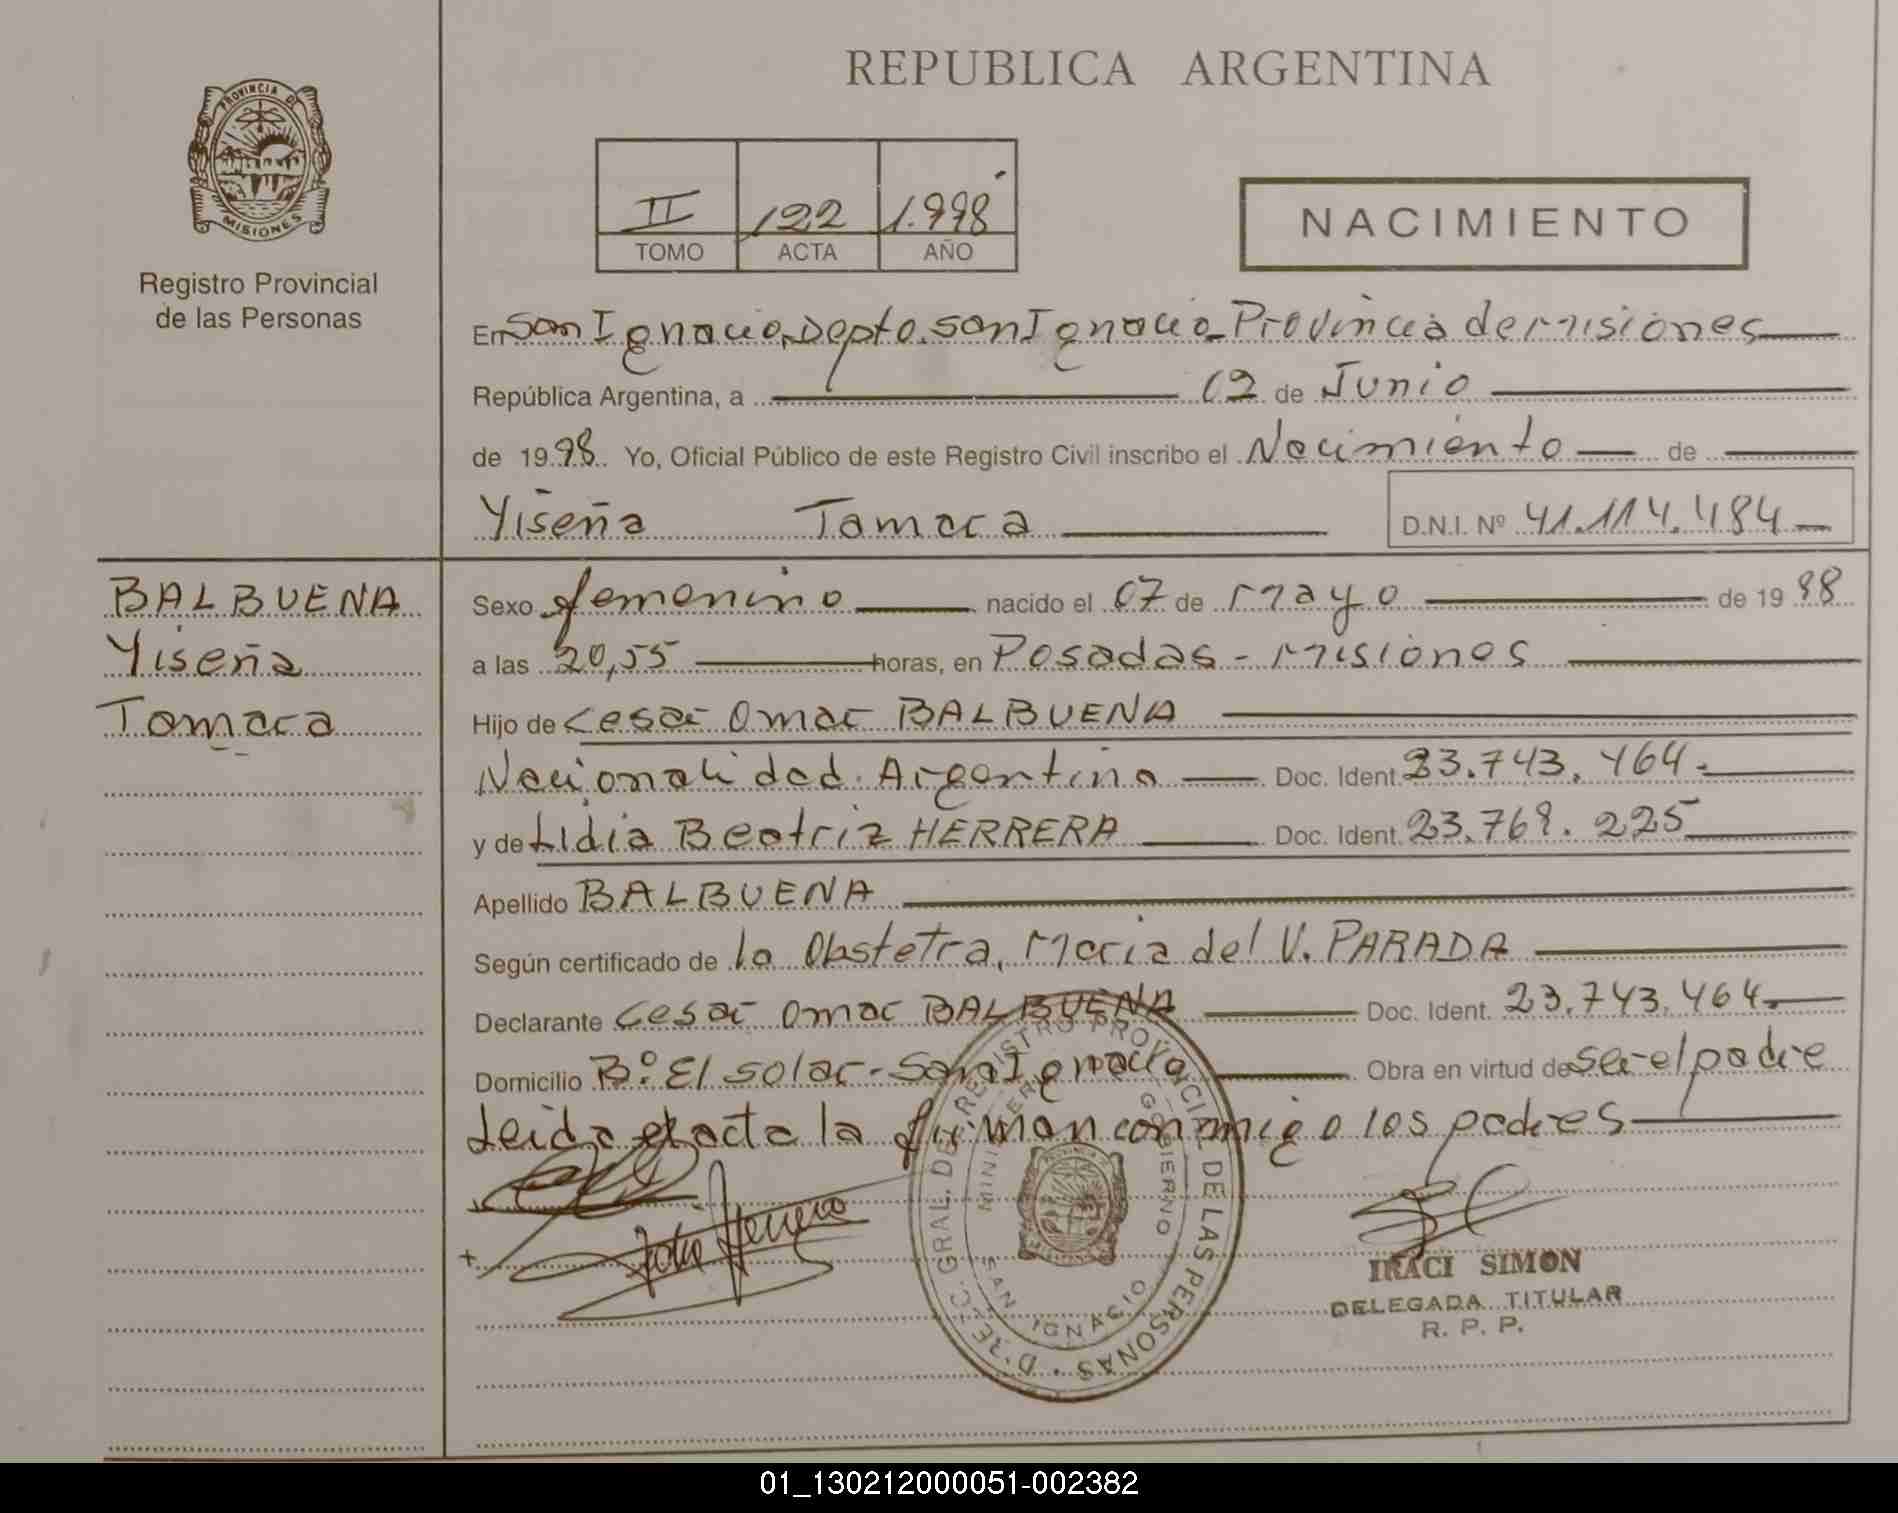 REPUBLICA ARGENTINA
PROVINCIA DE
MISIONES
Registro Provincial
de las Personas
II 122 1.998
TOMO ACTA AÑO
NACIMIENTO
En San Ignacio, Depto. San Ignacio Provincia de Misiones
República Argentina, a 02 de Junio
de 1998 Yo, Oficial Público de este Registro Civil inscribo el Nacimiento de
Yiseña Tamara D.N.I. Nº 41.114.484
BALBUENA
Yiseña
Tamara
Sexo femenino nacido el 07 de Mayo de 1998
a las 20,55 horas, en Posadas - Misiones
Hijo de Cesar Omar BALBUENA
Nacionalidad Argentina Doc. Ident. 23.743.464.
y de Lidia Beatriz HERRERA Doc. Ident. 23.769.225
Apellido BALBUENA
Según certificado de la Obstetra, Maria del V. PARADA
Declarante Cesar Omar BALBUENA Doc. Ident. 23.743.464
Domicilio Bº. El Solar - San Ignacio Obra en virtud de ser el padre
Leida el acta la firman conmigo los padres
Herrera
DIREC. GRAL. DE REGISTRO PROVINCIAL DE LAS PERSONAS
MINISTERIO GOBIERNO
SAN IGNACIO
IRACI SIMON
DELEGADA TITULAR
R. P. P.
01_130212000051-002382